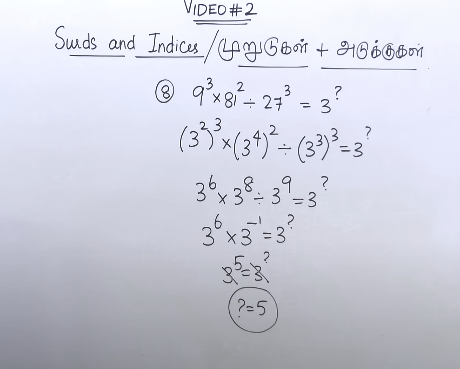 VIDEO # 2
Surds and Indices / முறுடுகள் + அடுக்குகள்
⑧ 9³ × 81² ÷ 27³ = 3^?
(3²)³ × (3⁴)² ÷ (3³)³ = 3^?
3⁶ × 3⁸ ÷ 3⁹ = 3^?
3⁶ × 3⁻¹ = 3^?
3⁵ = 3^?
? = 5